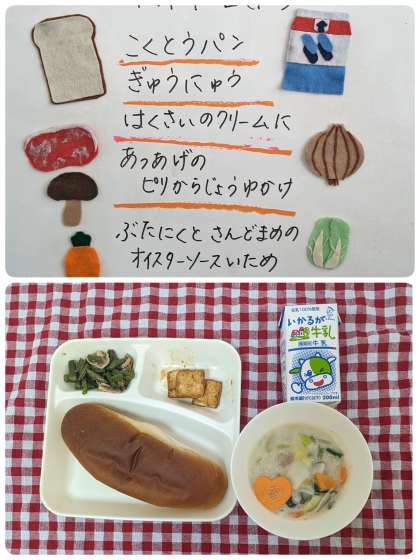 こくとうパン
ぎゅうにゅう
はくさいのクリームに
あつあげの
ピリからじょうゆかけ
ぶたにくと さんどまめの
オイスターソースいため
いかるが
牛乳
200ml